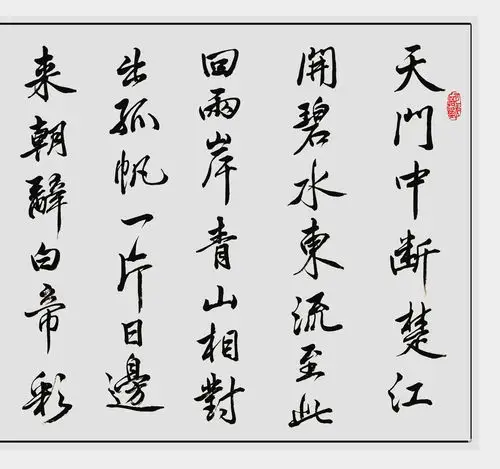 天門中断楚江
開碧水東流至此
回兩岸青山相對
出孤帆一片日邊
来朝辭白帝彩